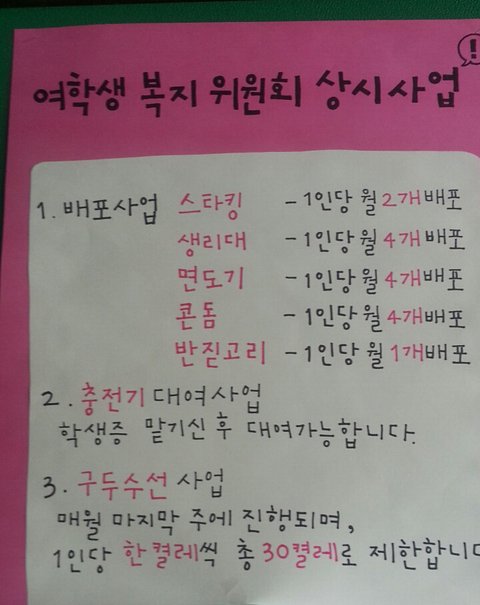 여학생 복지 위원회 상시사업
!
1. 배포사업 스타킹 - 1인당 월 2개 배포
생리대 - 1인당 월 4개 배포
면도기 - 1인당 월 4개 배포
콘돔 - 1인당 월 4개 배포
반짇고리 - 1인당 월 1개 배포
2. 충전기 대여사업
학생증 맡기신 후 대여가능합니다.
3. 구두수선 사업
매월 마지막 주에 진행되며,
1인당 한 켤레씩 총 30켤레로 제한합니다